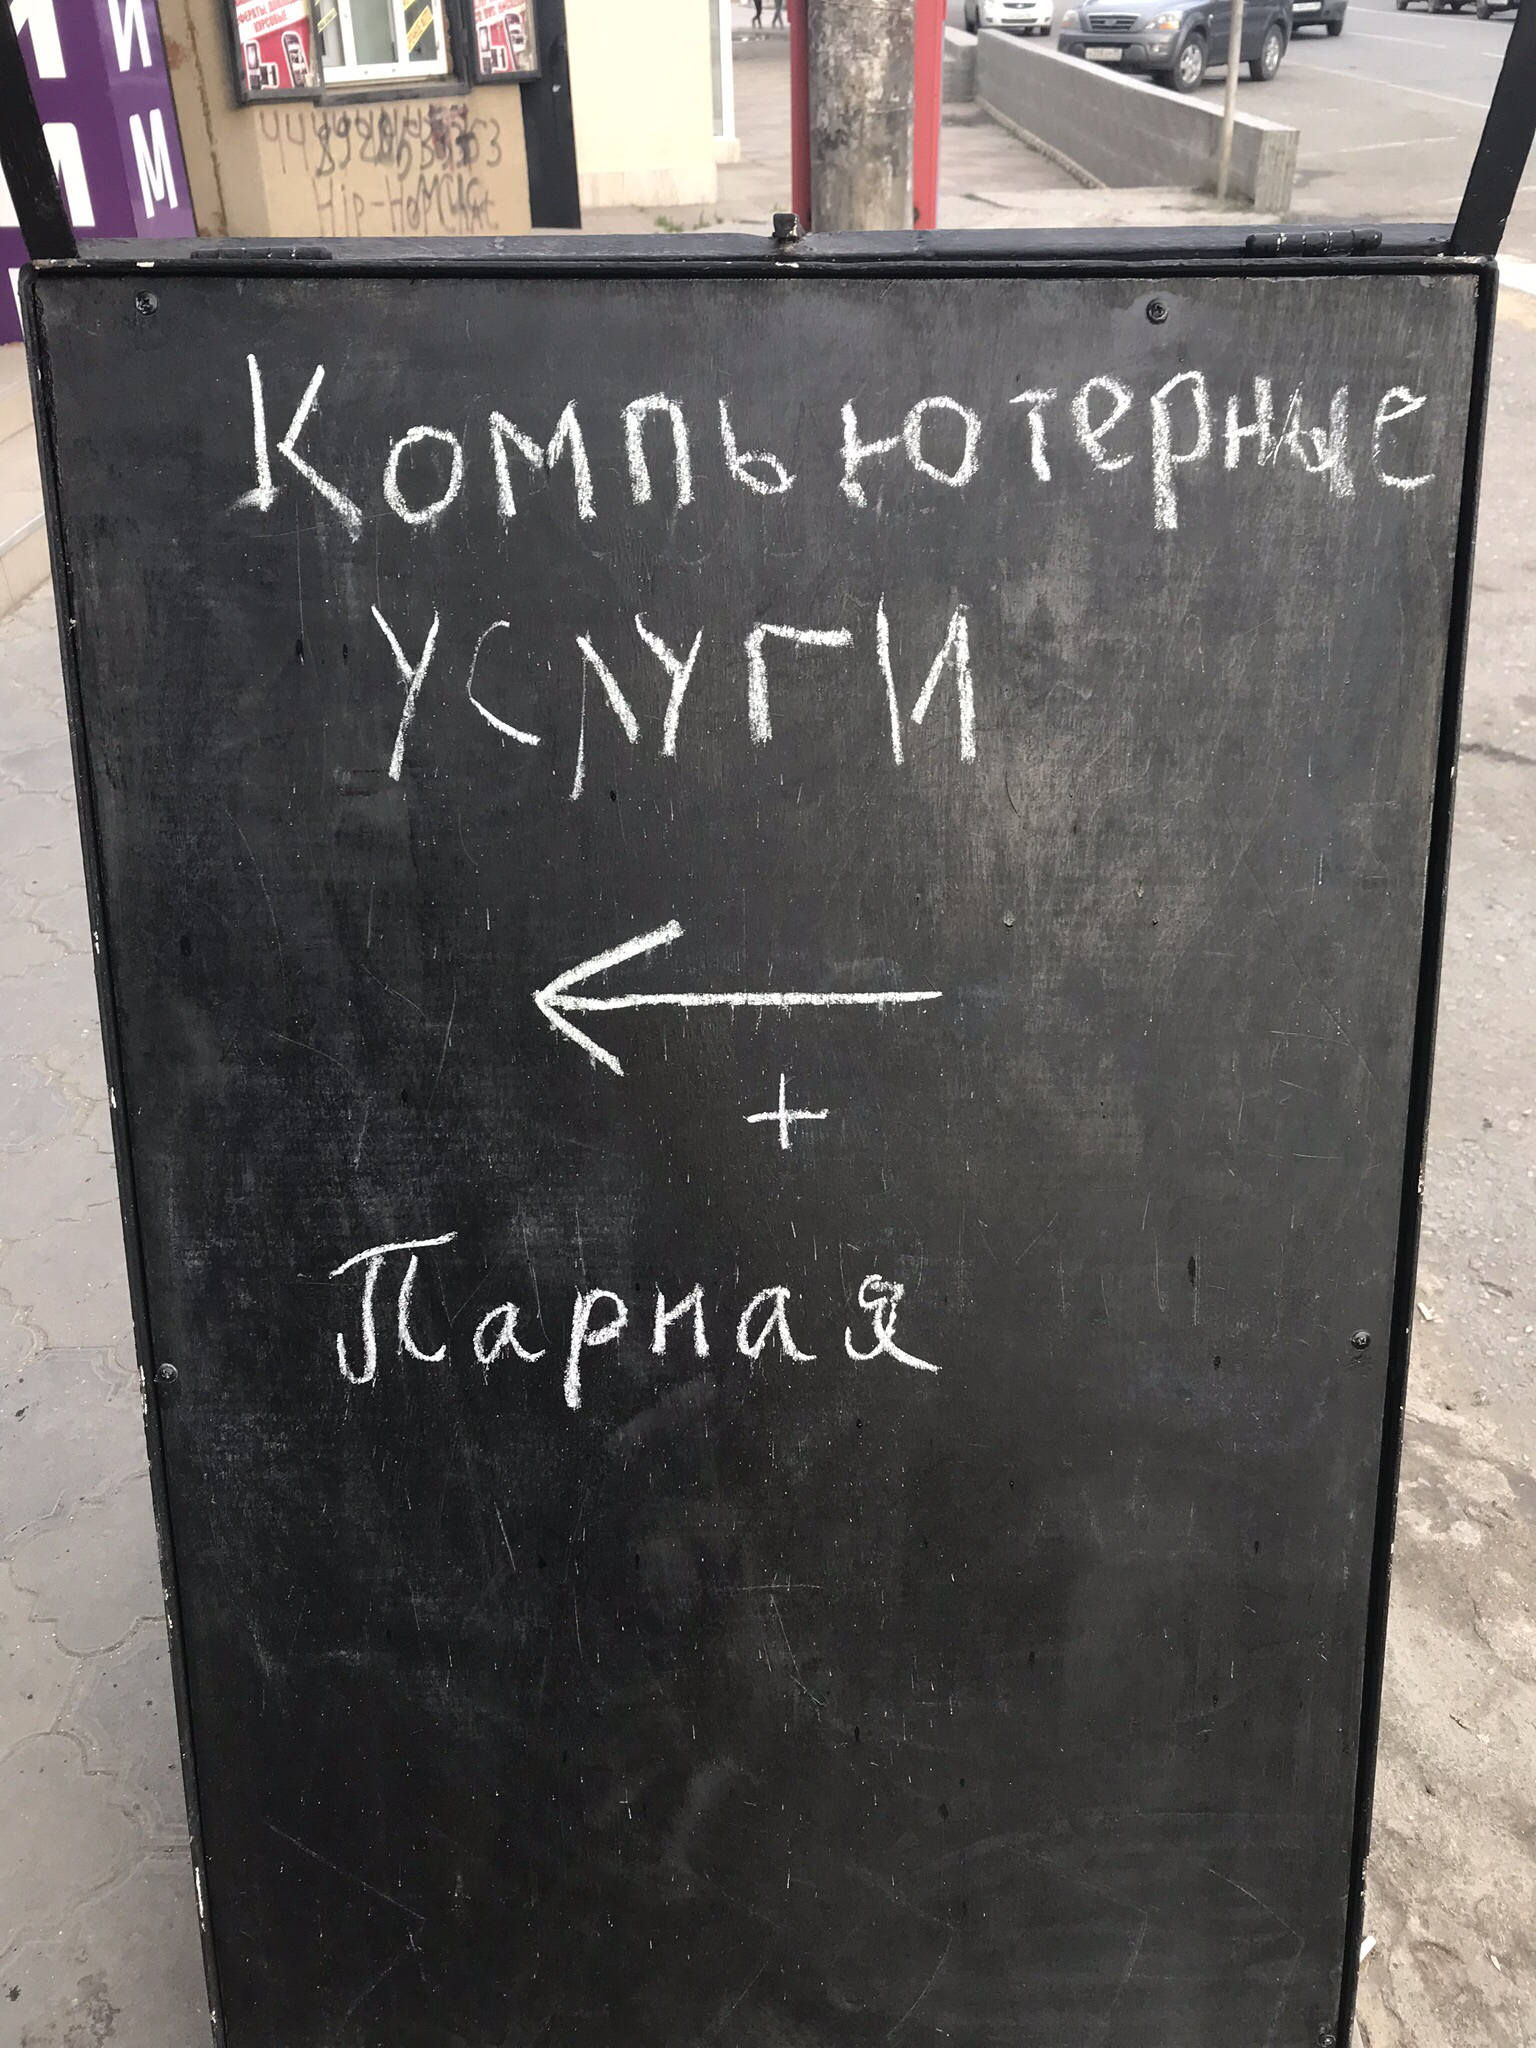 И
М
КУРСОВЫЕ
Hip-Hop
Компьютерные
услуги
←
+
Парная